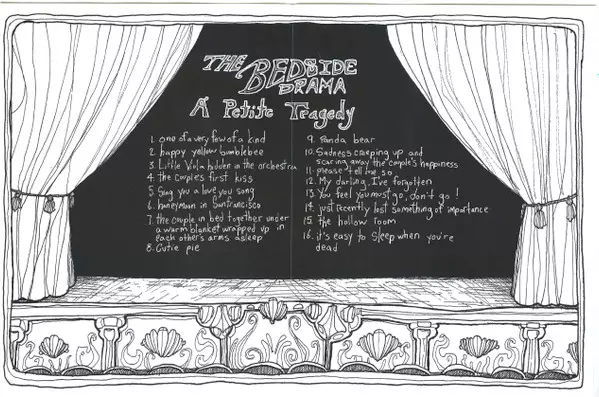 THE
BEDSIDE
DRAMA
A Petite Tragedy
1. one of a very few of a kind
2. happy yellow bumblebee
3. Little Viola hidden in the orchestra
4. The couples first kiss
5. Sing you a love you song
6. honeymoon in Sanfrancisco
7. the couple in bed together under
a warm blanket wrapped up in
each other's arms asleep
8. Cutie pie
9. Panda bear
10. Sadness creeping up and
scaring away the couple's happiness
11. please tell me so
12. My darling, I've forgotten
13. You feel you must go, don't go!
14. just recently lost something of importance
15. the hollow room
16. it's easy to sleep when you're
dead